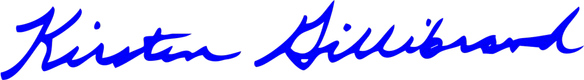 Kirsten Gillibrand